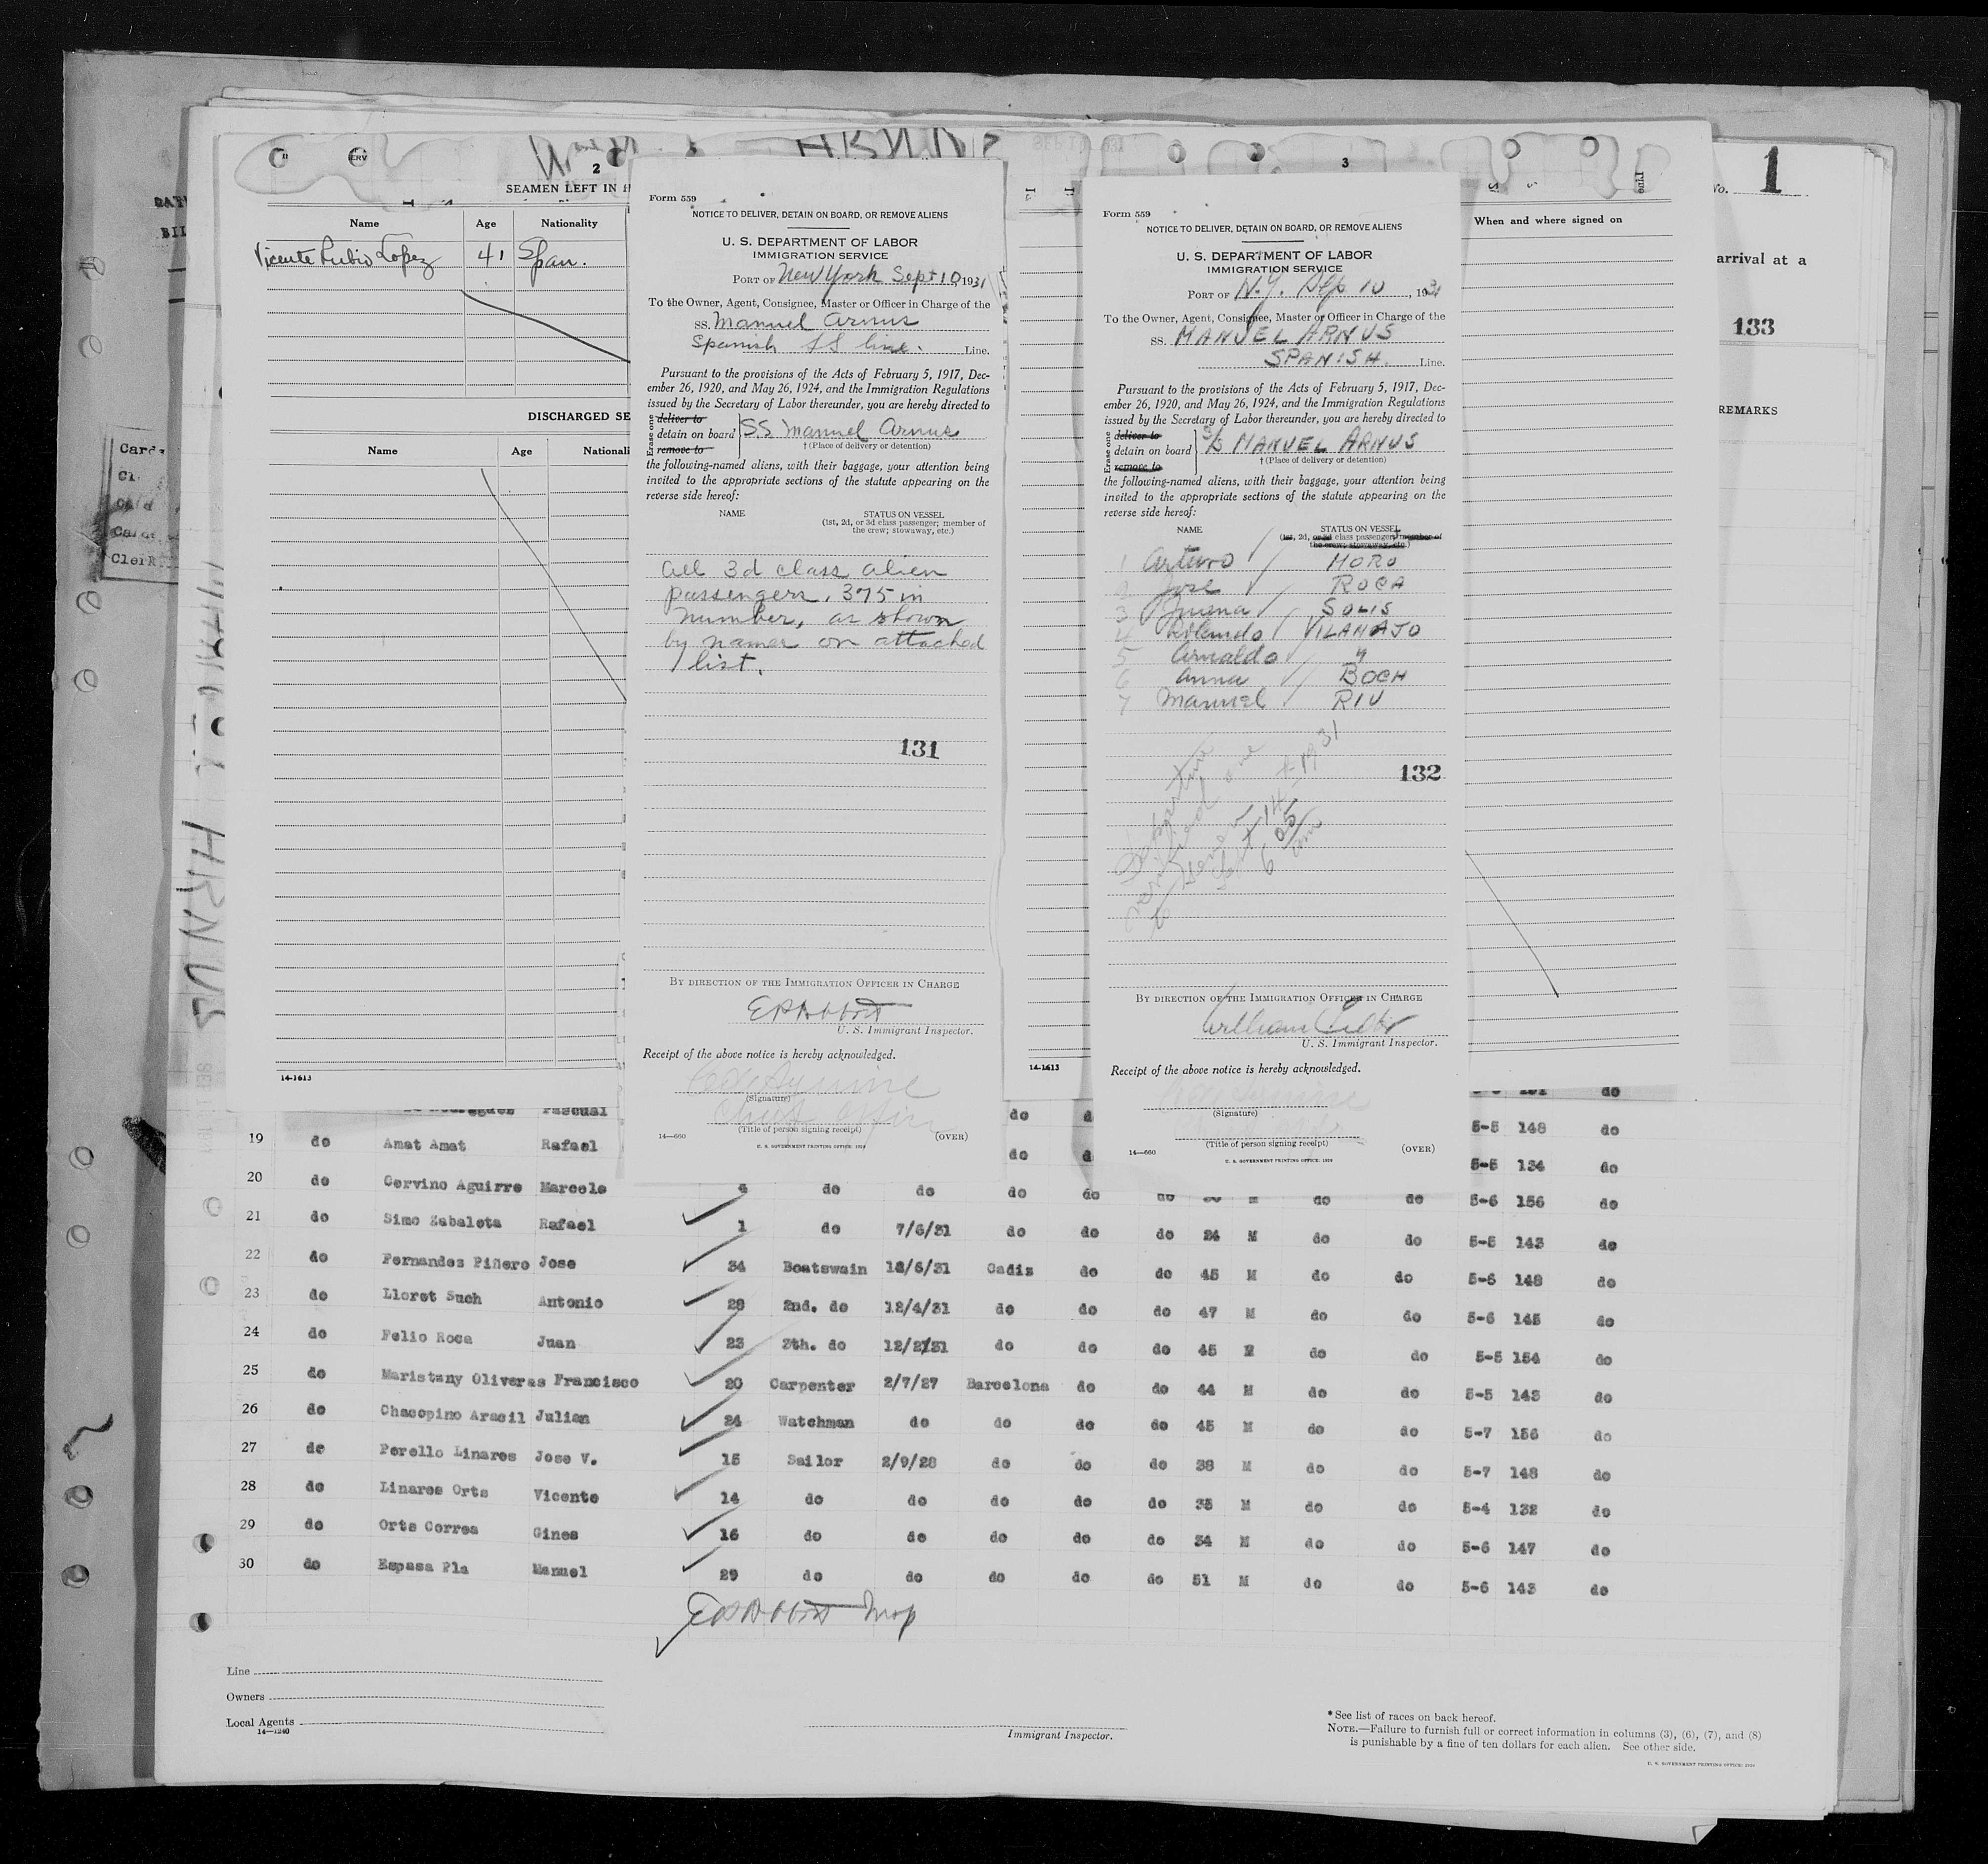 2
3
No. 1
SEAMEN LEFT IN H
Name Age Nationality
Vicente Rubio Lopez 41 Span.
DISCHARGED SE
Name Age Nationali
14-1613
Form 559
NOTICE TO DELIVER, DETAIN ON BOARD, OR REMOVE ALIENS
U. S. DEPARTMENT OF LABOR
IMMIGRATION SERVICE
PORT OF New York Sept 10, 1931
To the Owner, Agent, Consignee, Master or Officer in Charge of the
SS. Manuel Arnus
Spanish SS line. Line.
Pursuant to the provisions of the Acts of February 5, 1917, Dec-
ember 26, 1920, and May 26, 1924, and the Immigration Regulations
issued by the Secretary of Labor thereunder, you are hereby directed to
Erase one
deliver to
detain on board SS Manuel Arnus
remove to
†(Place of delivery or detention)
the following-named aliens, with their baggage, your attention being
invited to the appropriate sections of the statute appearing on the
reverse side hereof:
NAME STATUS ON VESSEL
(1st, 2d, or 3d class passenger; member of
the crew; stowaway, etc.)
All 3d class alien
passengers, 375 in
number, as shown
by names on attached
list.
131
BY DIRECTION OF THE IMMIGRATION OFFICER IN CHARGE
EPAbbott
U. S. Immigrant Inspector.
Receipt of the above notice is hereby acknowledged.
(Signature)
Chief Officer
(Title of person signing receipt)
14—660 (OVER)
U. S. GOVERNMENT PRINTING OFFICE: 1929
14-1613
Form 559
NOTICE TO DELIVER, DETAIN ON BOARD, OR REMOVE ALIENS
U. S. DEPARTMENT OF LABOR
IMMIGRATION SERVICE
PORT OF N.Y. Sep 10, 1931
To the Owner, Agent, Consignee, Master or Officer in Charge of the
SS. MANUEL ARNUS
SPANISH. Line.
Pursuant to the provisions of the Acts of February 5, 1917, Dec-
ember 26, 1920, and May 26, 1924, and the Immigration Regulations
issued by the Secretary of Labor thereunder, you are hereby directed to
Erase one
deliver to
detain on board S/S MANUEL ARNUS
remove to
†(Place of delivery or detention)
the following-named aliens, with their baggage, your attention being
invited to the appropriate sections of the statute appearing on the
reverse side hereof:
NAME STATUS ON VESSEL
(1st, 2d, or 3d class passenger; member of
the crew; stowaway, etc.)
1 Arturo MORO
2 Jose ROCA
3 Jimena SOLIS
4 Rolando VILAMAJO
5 Arnaldo "
6 Anna BOCH
7 Manuel RIU
Departure
verified one
Sept 14 1931
6 05 am
132
BY DIRECTION OF THE IMMIGRATION OFFICER IN CHARGE
William
U. S. Immigrant Inspector.
Receipt of the above notice is hereby acknowledged.
(Signature)
(Title of person signing receipt)
14—660 (OVER)
U. S. GOVERNMENT PRINTING OFFICE: 1929
When and where signed on
arrival at a
133
REMARKS
Card
Clerk
MANUEL ARNUS
Pascual do 5-5 148 do
19 do Amat Amat Rafael do 5-5 134 do
20 do Cervino Aguirre Marcelo do do do do do M do do 5-6 156 do
21 do Simo Zabaleta Rafael 1 do 7/6/31 do do do 24 M do do 5-5 143 do
22 do Fernandez Piñero Jose 34 Boatswain 12/6/31 Cadiz do do 45 M do do 5-6 148 do
23 do Lloret Such Antonio 29 2nd. do 12/4/31 do do do 47 M do do 5-6 145 do
24 do Felio Roca Juan 23 3th. do 12/2/31 do do do 45 M do do 5-5 154 do
25 do Maristany Oliveras Francisco 20 Carpenter 2/7/27 Barcelona do do 44 M do do 5-5 143 do
26 do Chacopino Aracil Julian 24 Watchman do do do do 45 M do do 5-7 156 do
27 do Perello Linares Jose V. 15 Sailor 2/9/28 do do do 38 M do do 5-7 148 do
28 do Linares Orts Vicente 14 do do do do do 35 M do do 5-4 132 do
29 do Orts Correa Gines 16 do do do do do 34 M do do 5-6 147 do
30 do Espasa Pla Manuel 29 do do do do do 51 M do do 5-6 143 do
EPAbbott Insp
Line
Owners
Local Agents
14—1240
Immigrant Inspector.
* See list of races on back hereof.
NOTE.—Failure to furnish full or correct information in columns (3), (6), (7), and (8)
is punishable by a fine of ten dollars for each alien. See other side.
U. S. GOVERNMENT PRINTING OFFICE: 1929